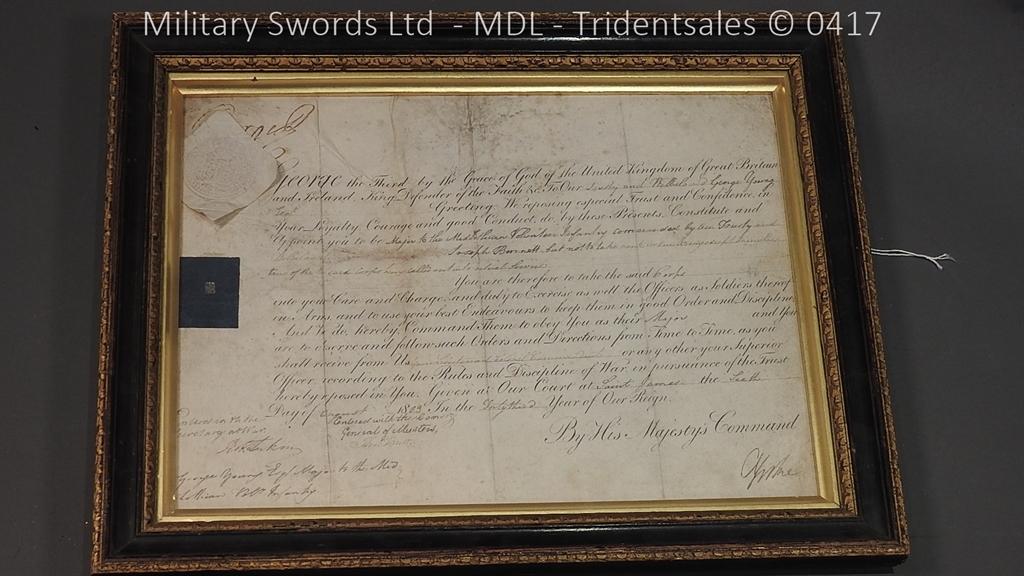 Military Swords Ltd - MDL - Tridentsales © 0417
George
George the Third by the Grace of God of the United Kingdom of Great Britain
and Ireland, King, Defender of the Faith &c. To Our Trusty and Wellbeloved George Young
Esqr. Greeting: We reposing especial Trust and Confidence in
Your Loyalty, Courage and good Conduct, do, by these Presents, Constitute and
Appoint you to be Major to the Volunteer Infantry commanded by our Trusty and
Joseph Bennett but not to take rank in the Army except
time of the said Corps being called out into actual Service
You are therefore to take the said Corps
into your Care and Charge, and duly to Exercise as well the Officers as Soldiers thereof
in Arms and to use your best Endeavours to keep them in good Order and Discipline
And We do hereby Command Them to obey You as their Major and You
are to observe and follow such Orders and Directions from Time to Time, as you
shall receive from Us or any other your Superior
Officer according to the Rules and Discipline of War, in pursuance of the Trust
hereby reposed in You. Given at Our Court at Saint James's the
Day of August 1803 In the Forty third Year of Our Reign.
Entered with the
Secretary at War
Entered with the Commy
General of Musters
By His Majesty's Command
George Young Esqr Major to the
Infantry